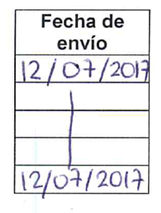 Fecha de
envío
12/07/2017
12/07/2017